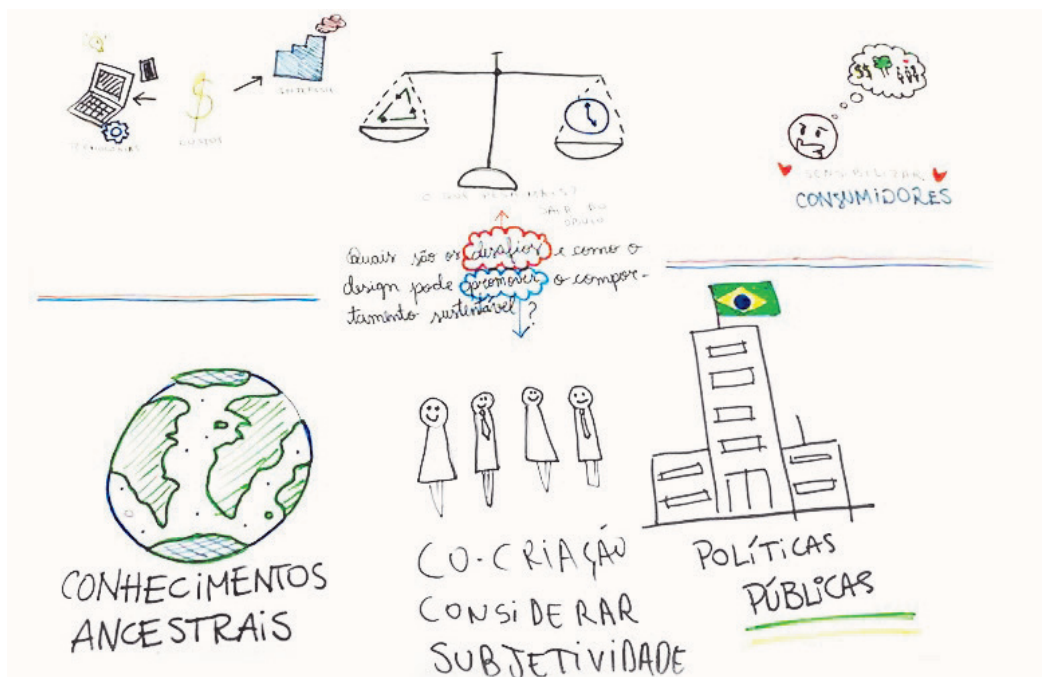 TECNOLOGIAS
CUSTOS
O QUE PESA MAIS?
SAIR DO
ÓBVIO
SENSIBILIZAR
CONSUMIDORES
Quais são os desafios e como o
design pode promover o compor-
tamento sustentável?
CONHECIMENTOS
ANCESTRAIS
CO-CRIAÇÃO
CONSIDERAR
SUBJETIVIDADE
POLÍTICAS
PÚBLICAS